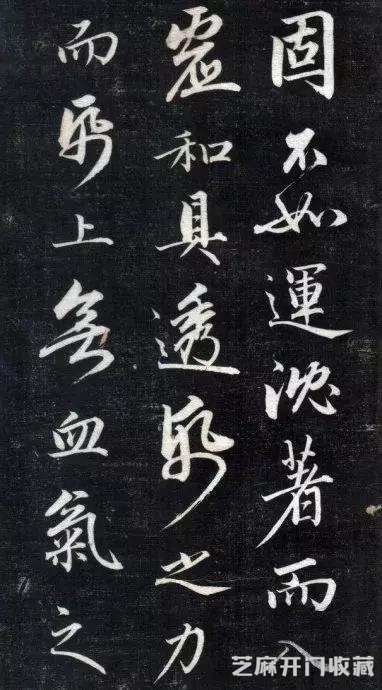 固不如運沈著而入
虛和具透帋之力
而帋上無血氣之
芝麻开门收藏